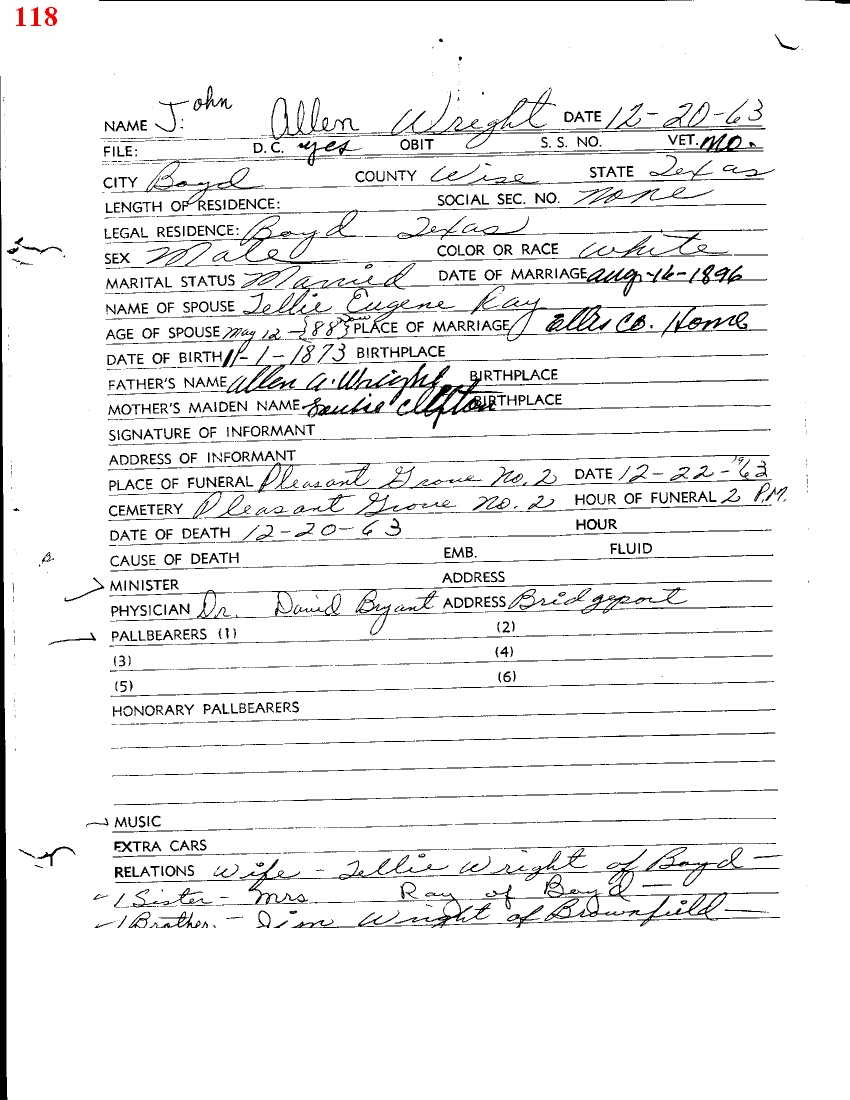 118
NAME John Allen Wright DATE 12-20-63
FILE: D.C. yes OBIT S. S. NO. VET. no.
CITY Boyd COUNTY Wise STATE Texas
LENGTH OF RESIDENCE: SOCIAL SEC. NO. none
LEGAL RESIDENCE: Boyd Texas
SEX Male COLOR OR RACE white
MARITAL STATUS Married DATE OF MARRIAGE aug-16-1896
NAME OF SPOUSE Tellie Eugene Ray
AGE OF SPOUSE May 12 - {88} now PLACE OF MARRIAGE Ellis Co. Home
DATE OF BIRTH 11-1-1873 BIRTHPLACE
FATHER'S NAME Allen A. Wright BIRTHPLACE
MOTHER'S MAIDEN NAME Clifton BIRTHPLACE
SIGNATURE OF INFORMANT
ADDRESS OF INFORMANT
PLACE OF FUNERAL Pleasant Grove No. 2 DATE 12-22-1963
CEMETERY Pleasant Grove No. 2 HOUR OF FUNERAL 2 P.M.
DATE OF DEATH 12-20-63 HOUR
CAUSE OF DEATH EMB. FLUID
MINISTER ADDRESS
PHYSICIAN Dr. David Bryant ADDRESS Bridgeport
PALLBEARERS (1) (2)
(3) (4)
(5) (6)
HONORARY PALLBEARERS
MUSIC
EXTRA CARS
RELATIONS Wife - Tellie Wright of Boyd -
1 Sister - Mrs Ray of Boyd -
1 Brother. - Jim Wright of Brownfield -